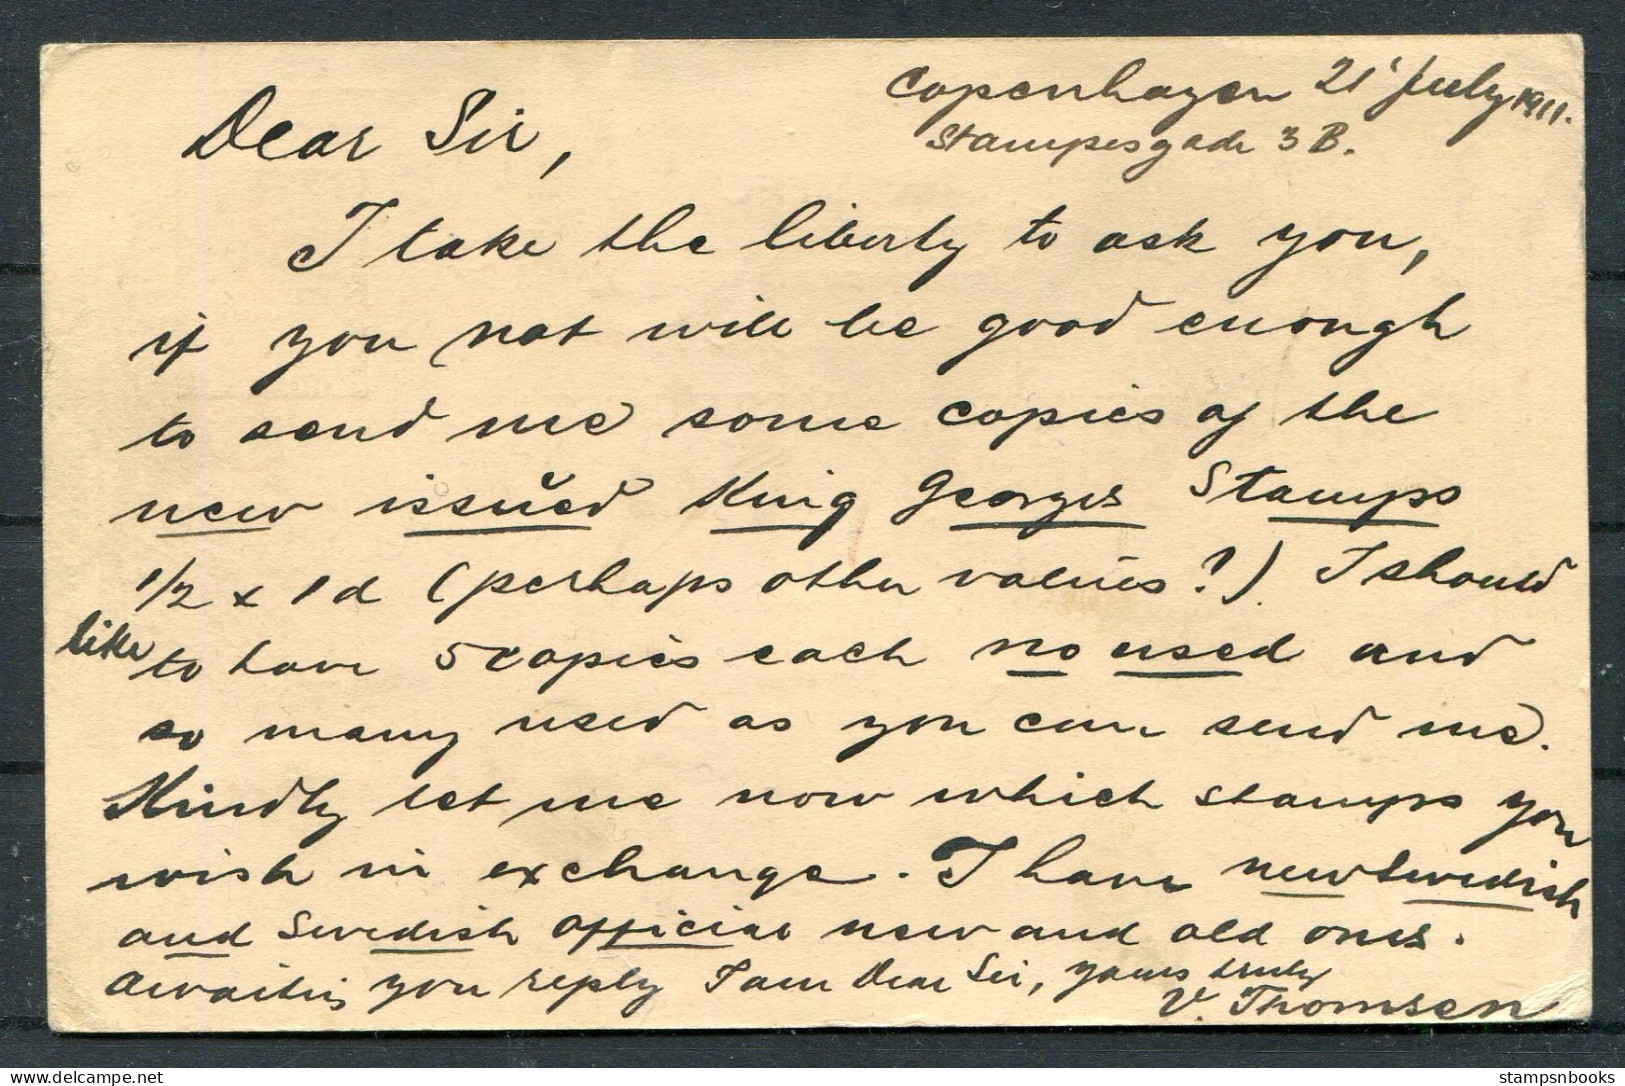 Copenhagen 21' July 1911.
Stampesgade 3 B.
Dear Sir,
I take the liberty to ask you,
if you not will be good enough
to send me some copies of the
new issued King Georges Stamps
1/2 & 1 d (perhaps other values?) I should
like to have 5 copies each no used and
so many used as you can send me.
Kindly let me now which stamps you
wish in exchange. I have new Swedish
and Swedish official new and old ones.
Awaiting you reply I am Dear Sir, yours truly
V. Thomsen
stampsnbooks